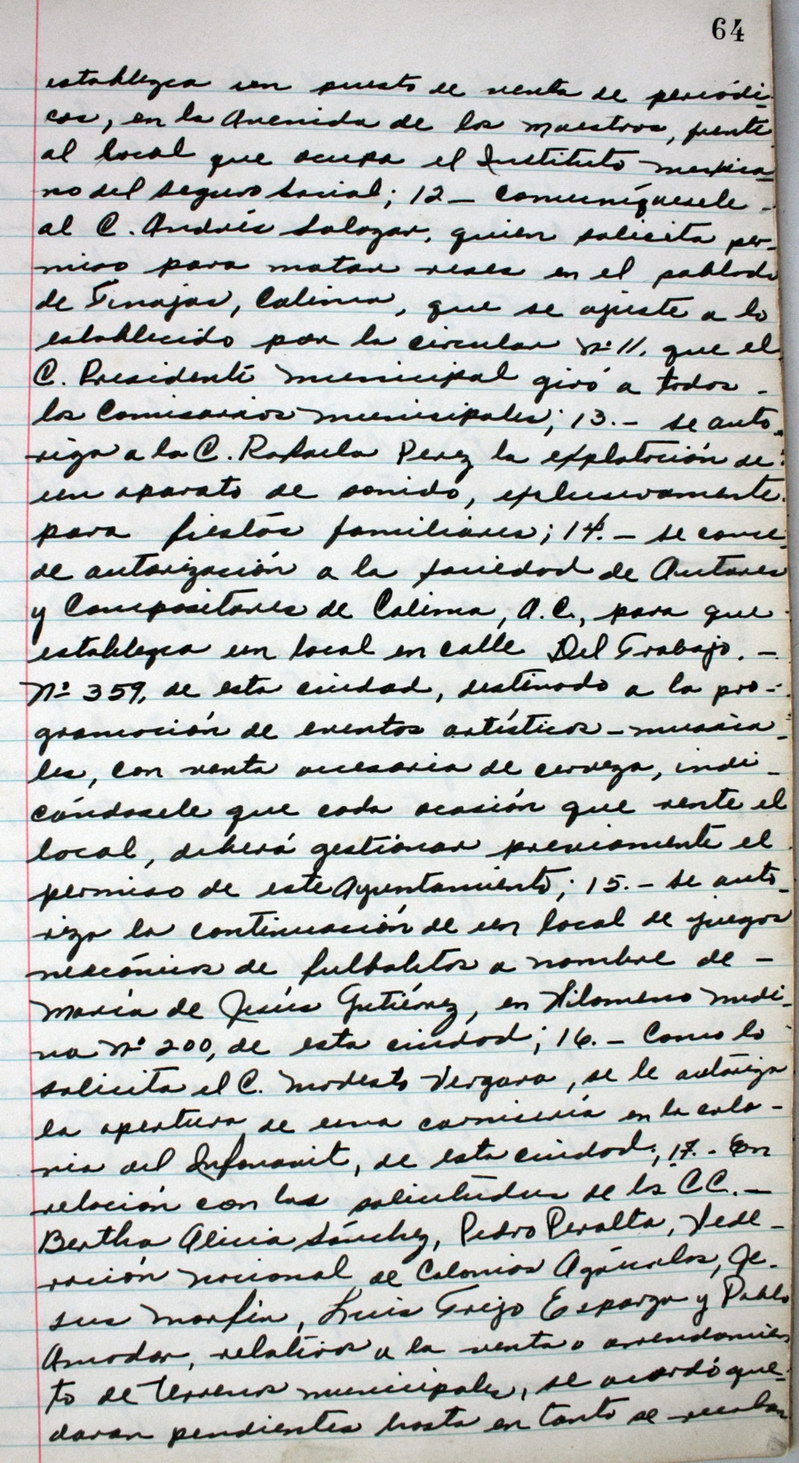 64
establezca un puesto de venta de periódi-
cos, en la Avenida de los Maestros, frente
al local que ocupa el Instituto Mexica-
no del Seguro Social; 12 - comuníquesele -
al C. Andrés Salazar, quien solicita per-
miso para matar reses en el poblado
de Tinajas, Colima, que se ajuste a lo
establecido por la circular Nº 11, que el
C. Presidente Municipal giró a todos -
los Comisarios Municipales; 13.- se auto-
riza a la C. Rafaela Perez la explotación de
un aparato de sonido, exclusivamente
para fiestas familiares; 14.- se conce-
de autorización a la Sociedad de Autores
y Compositores de Colima, A.C., para que
establezca un local en calle Del Trabajo. -
Nº 359, de esta ciudad, destinado a la pro-
gramación de eventos artísticos - musica-
les, con venta accesoria de cerveza, indi-
cándosele que cada ocasión que rente el
local, deberá gestionar previamente el
permiso de este Ayuntamiento; 15.- se auto-
riza la continuación de un local de juegos
mecánicos de futbolitos a nombre de -
María de Jesús Gutiérrez, en Filomeno Medi-
na Nº 200, de esta ciudad; 16.- Como lo
solicita el C. Modesto Vergara, se le autoriza
la apertura de una carnicería en la colo-
nia del Infonavit, de esta ciudad; 17.- En
relación con las solicitudes de los CC. -
Bertha Alicia Sánchez, Pedro Peralta, Fede-
ración Nacional de Colonias Agrícolas, Je-
sus Morfín, Luis Trejo Esparza y Pablo
Amador, relativos a la venta o arrendamien
to de terrenos municipales, se acordó que-
daran pendientes hasta en tanto se recaban